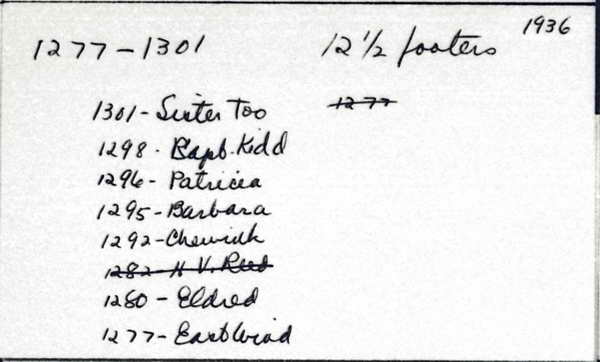 1936
1277-1301 12 1/2 footers
1301- Sister Too 1277
1298 - Capt. Kidd
1296- Patricia
1295- Barbara
1292-
1282- H V. Reed
1280 - Eldred
1277- East Wind